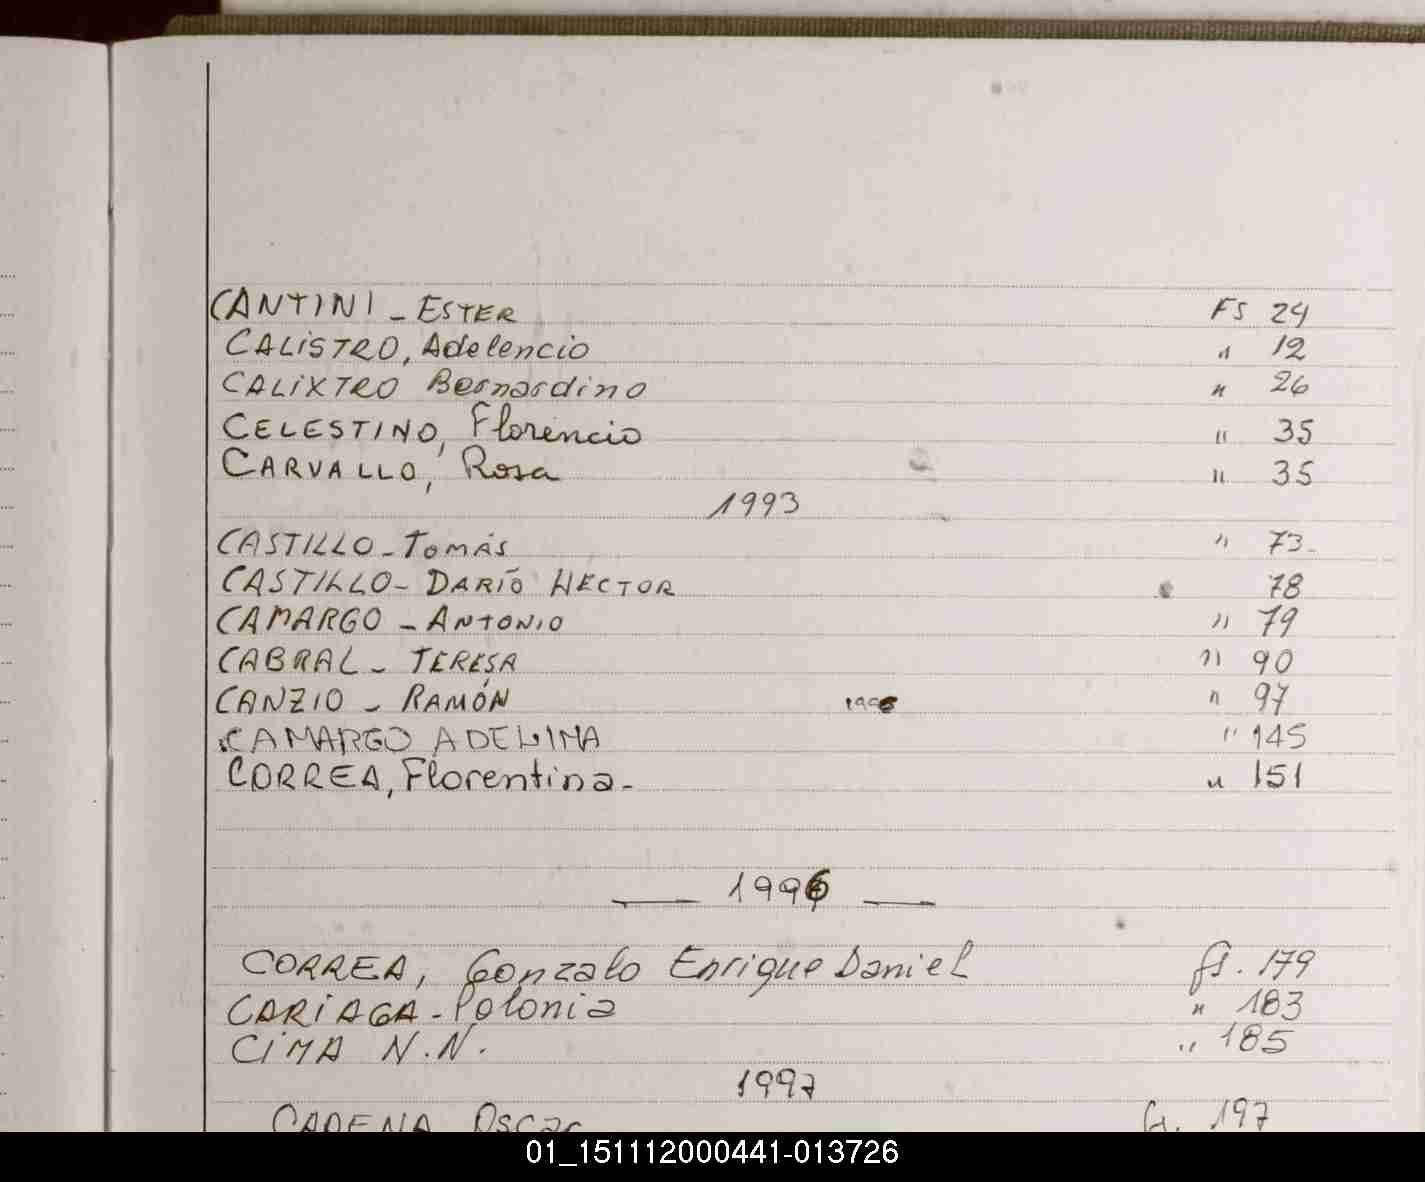 CANTINI - ESTER FS 24
CALISTRO, Adelencio " 12
CALIXTRO Bernardino " 26
CELESTINO, Florencio " 35
CARVALLO, Rosa " 35
1993
CASTILLO - TOMÁS " 73-
CASTILLO - DARÍO HECTOR 78
CAMARGO - ANTONIO " 79
CABRAL - TERESA " 90
CANZIO - RAMÓN 1996 " 97
CAMARGO ADELINA " 145
CORREA, Florentina- " 151
1996
CORREA, Gonzalo Enrique Daniel fs. 179
CARIAGA - Polonia " 183
CIMA N.N. " 185
1997
CADENA Oscar fs. 197
01_151112000441-013726